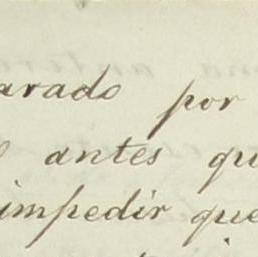 arado por
antes qu
impedir que